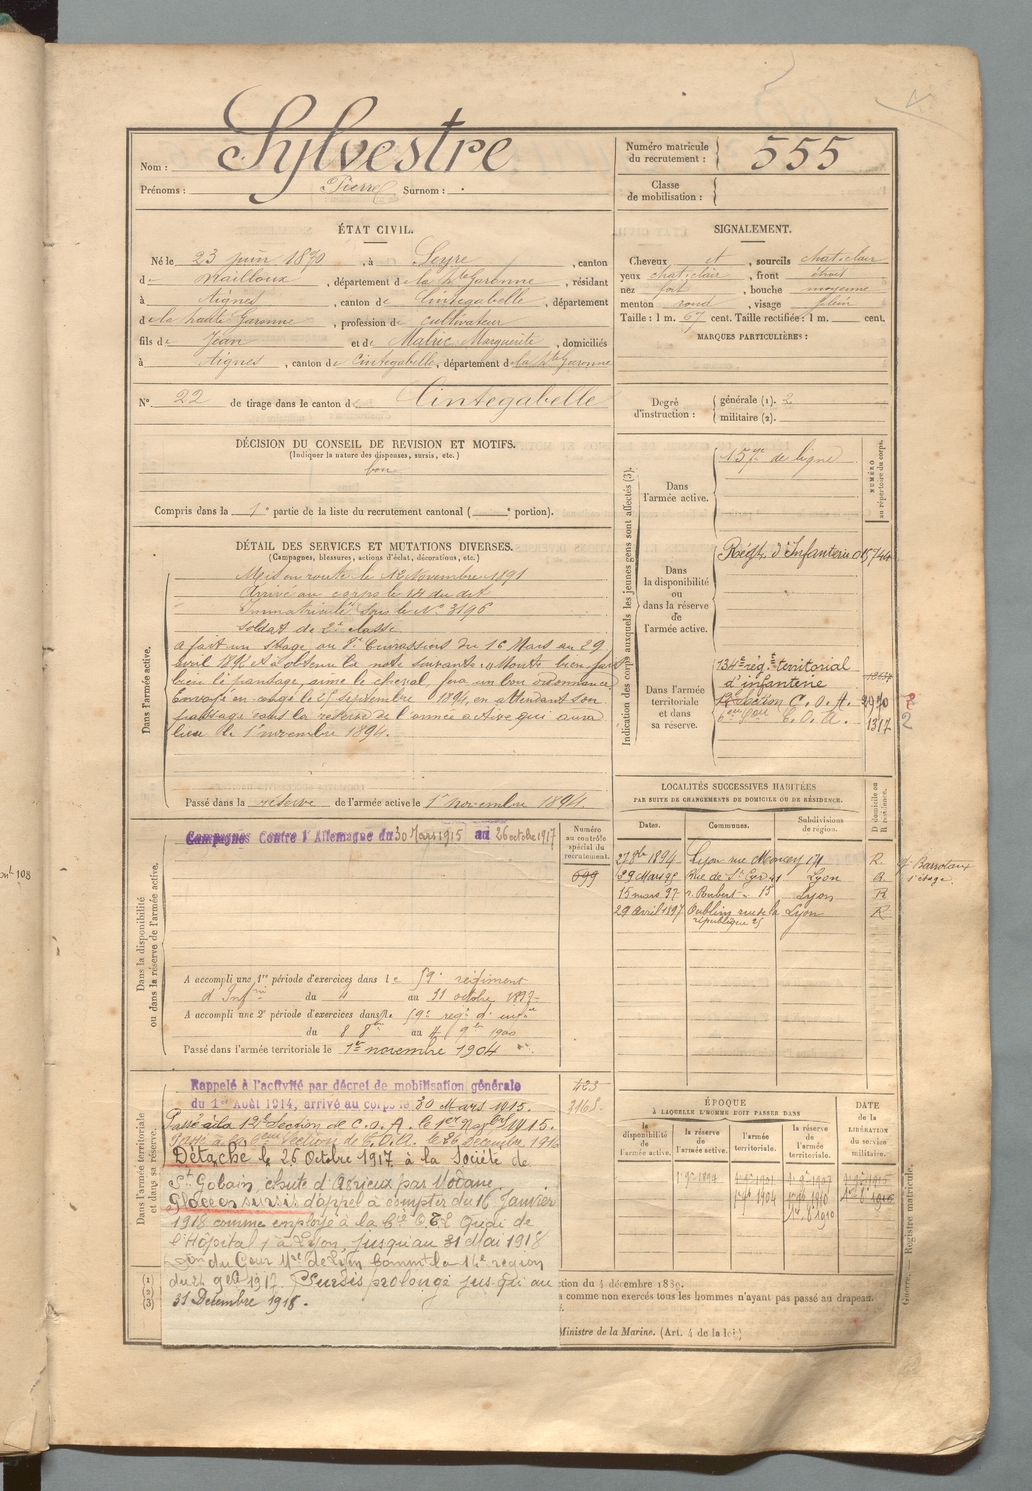 Nom : Sylvestre
Prénoms : Pierre Surnom : .
Numéro matricule du recrutement : 555
Classe de mobilisation :
ÉTAT CIVIL.
Né le 23 juin 1870, à Seyre, canton
de Mailloux, département de la Hte Garonne, résidant
à Aignes, canton de Cintegabelle, département
de la haute Garonne, profession de cultivateur
fils de Jean et de Matric Marguerite, domiciliés
à Aignes, canton de Cintegabelle, département de la Hte Garonne
N° 22 de tirage dans le canton de Cintegabelle
SIGNALEMENT.
Cheveux et, sourcils chat.clair
yeux chat.clair, front étroit
nez fort, bouche moyenne
menton rond, visage plein
Taille : 1 m. 67 cent. Taille rectifiée : 1 m. cent.
MARQUES PARTICULIÈRES :
Degré d'instruction : générale (1). 2
militaire (2).
DÉCISION DU CONSEIL DE REVISION ET MOTIFS.
(Indiquer la nature des dispenses, sursis, etc.)
bon
Compris dans la 1e partie de la liste du recrutement cantonal ( e portion).
DÉTAIL DES SERVICES ET MUTATIONS DIVERSES.
(Campagnes, blessures, actions d'éclat, décorations, etc.)
Dans l'armée active.
Mis en route le 12 Novembre 1891
Arrivé au corps le 14 du dit
Immatriculé sous le N° 3196
Soldat de 2e classe
a fait un stage au 8e Cuirassiers du 16 Mars au 29
avril 1892 et a obtenu la note suivante : Monte bien fait
bien le pansage, aime le cheval fera un bon ordonnance
Envoyé en congé le 25 septembre 1894, en attendant son
passage dans la réserve de l'armée active qui aura
lieu le 1er novembre 1894.
Passé dans la réserve de l'armée active le 1er novembre 1894
Indication des corps auxquels les jeunes gens sont affectés (3).
NUMÉRO au répertoire du corps.
Dans l'armée active.
157e de ligne
Dans la disponibilité ou dans la réserve de l'armée active.
Régt. d'Infanterie 05744
Dans l'armée territoriale et dans sa réserve.
134e rég. territorial
d'infanterie
Section C. O. A. 2970
C. O. A. 1317
2
LOCALITÉS SUCCESSIVES HABITÉES
PAR SUITE DE CHANGEMENTS DE DOMICILE OU DE RÉSIDENCE.
Dates. Communes. Subdivisions de région. D domicile ou R résidence.
27 8bre 1894 Lyon rue Moncey 171 R
29 Mars 95 Rue de St Cyr 41 Lyon
15 mars 97 r. Boubert 15 Lyon R
29 avril 1897 Oullins rue de la république 25 Lyon R
Dans la disponibilité ou dans la réserve de l'armée active.
Campagnes Contre l'Allemagne du 30 Mars 1915 au 26 octobre 1917
Numéro au contrôle spécial du recrutement.
699
A accompli une 1re période d'exercices dans le 59e régiment
d'Infrie du 4 au 31 octobre 1897
A accompli une 2e période d'exercices dans le 59e regt d'infie
du 8 8bre au 4 9bre 1900
Passé dans l'armée territoriale le 1er novembre 1904
Dans l'armée territoriale et dans sa réserve.
Rappelé à l'activité par décret de mobilisation générale
du 1er Août 1914, arrivé au corps le 30 Mars 1915.
Passé à la 12e Section de C.O.A. le 1er Novbre 1915.
Section de C.O.A. le 26 Décembre 1916
Détaché le 26 Octobre 1917 à la Société de
St Gobain, chute d'Orieux par Modane
Placé en sursis d'appel à compter du 16 Janvier
1918 comme employé à la Cie O T L Quai de
l'Hôpital, à Lyon, jusqu'au 31 Mai 1918
du 24 1917. Sursis prolongé jusqu'au
31 Décembre 1918.
423
3168
ÉPOQUE
À LAQUELLE L'HOMME DOIT PASSER DANS
la disponibilité de l'armée active.
la réserve de l'armée active.
l'armée territoriale.
la réserve de l'armée territoriale.
DATE de la LIBÉRATION du service militaire.
(1)
(2)
(3)
ction du 4 décembre 1889.
a comme non exercés tous les hommes n'ayant pas passé au drapeau
Ministre de la Marine. (Art. 4 de la loi)
Registre matricule.